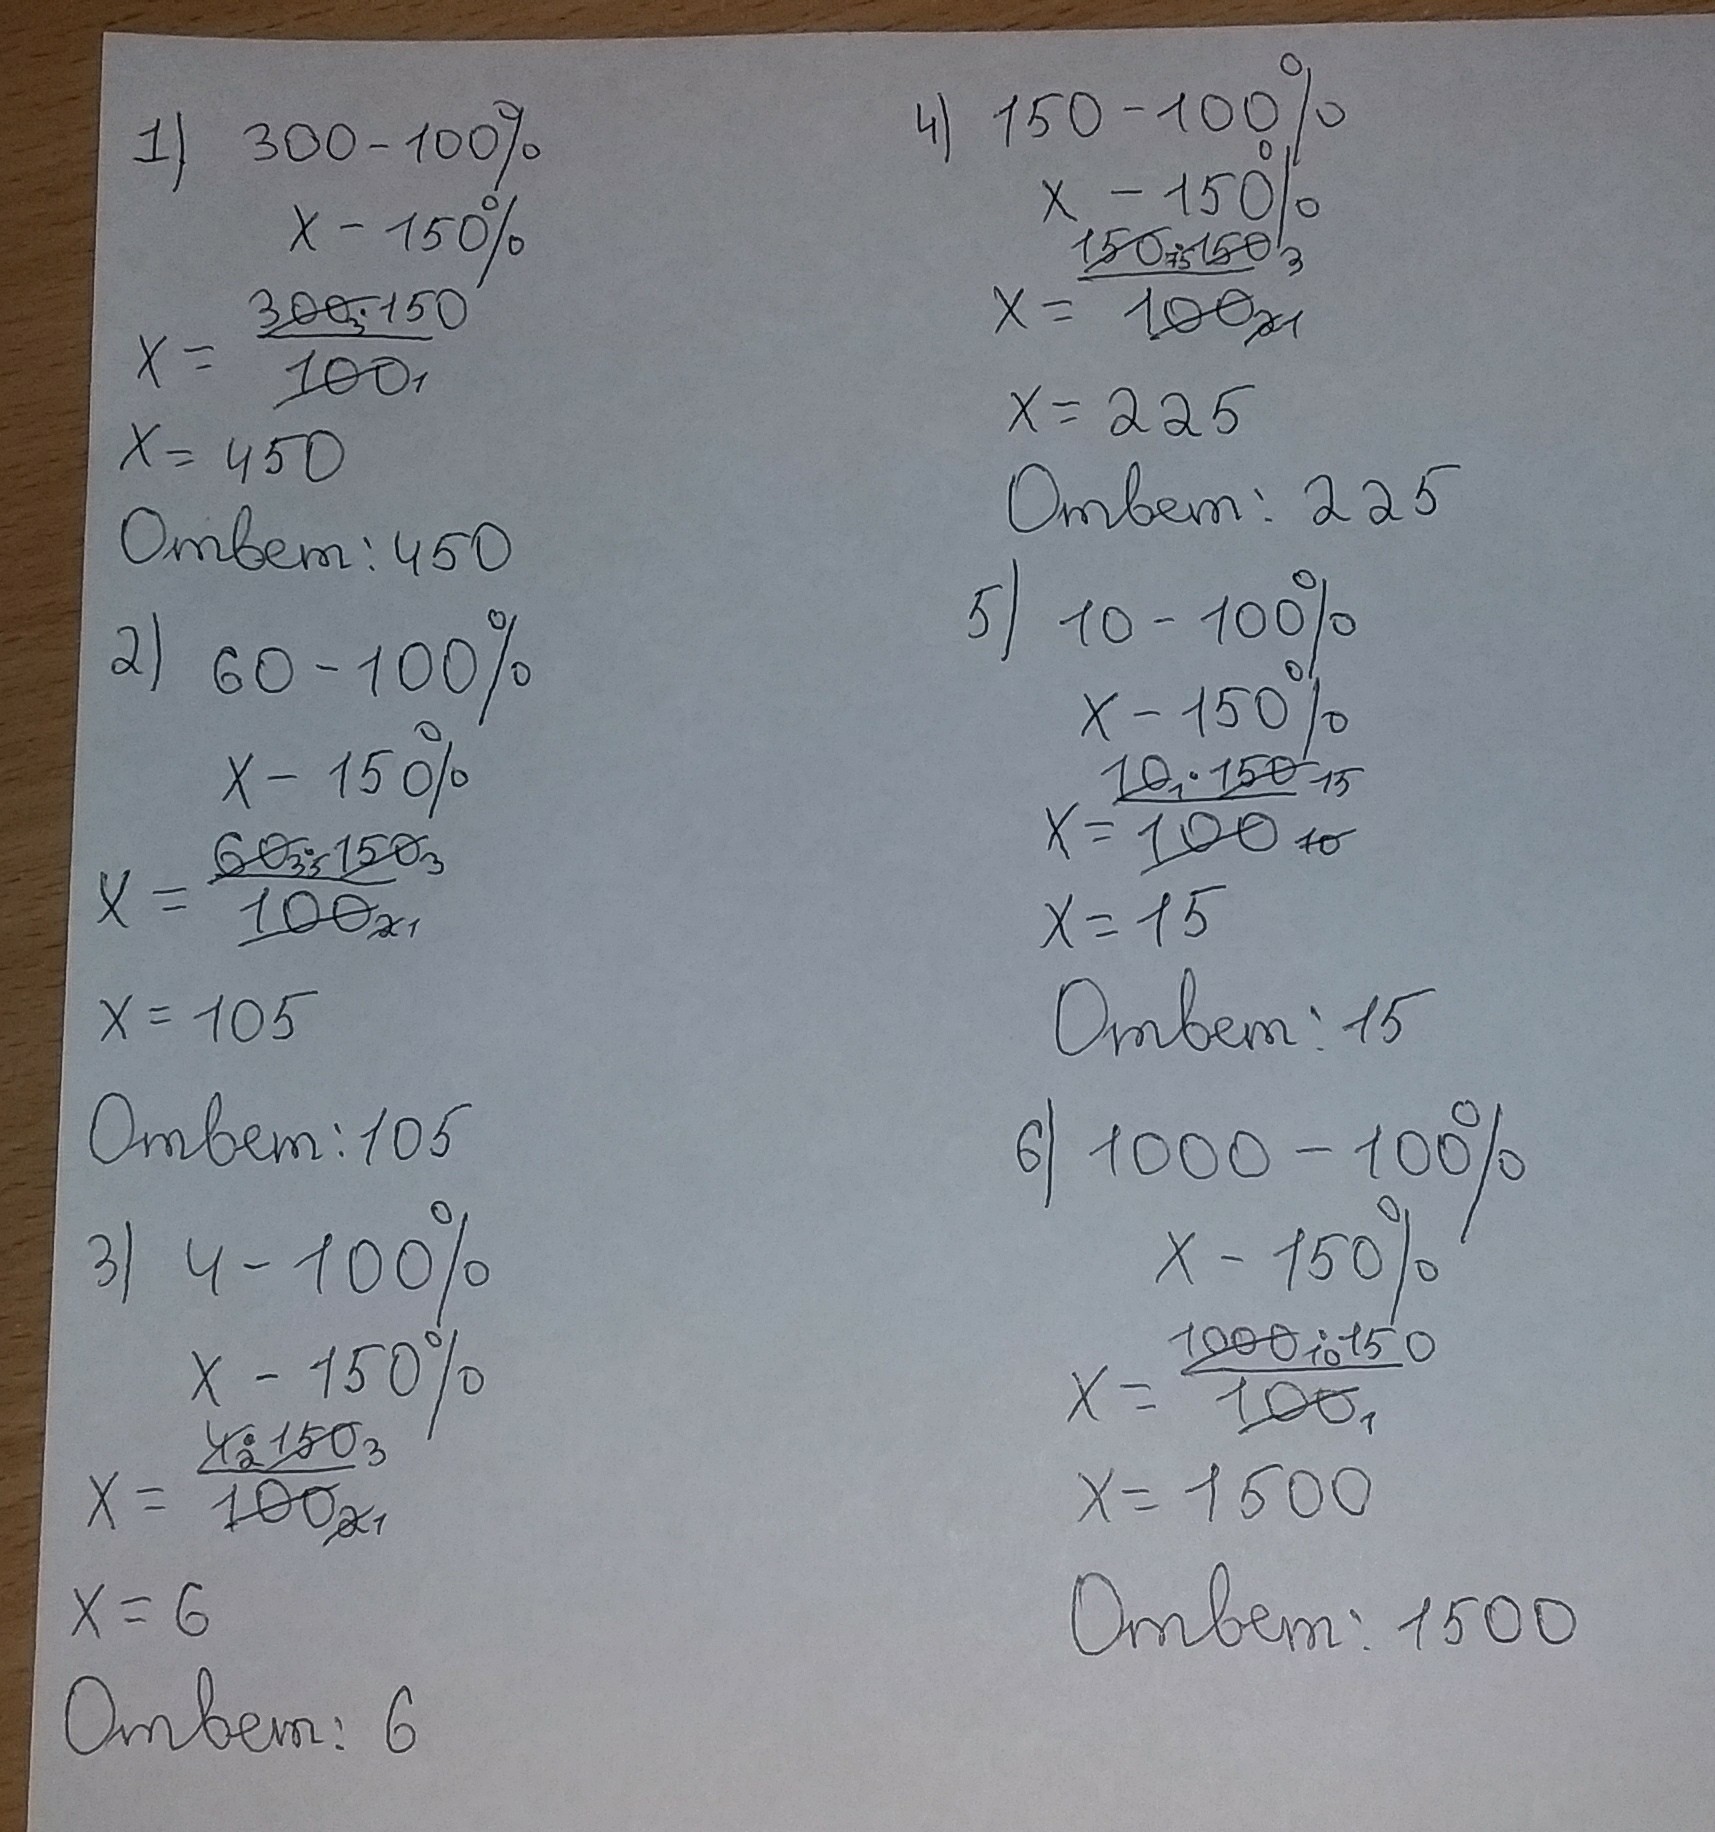 1) 300 - 100%
x - 150%
x = 300 3 · 150 / 100 1
x = 450
Ответ: 450
2) 60 - 100%
x - 150%
x = 60 35 · 150 3 / 100 2 1
x = 105
Ответ: 105
3) 4 - 100%
x - 150%
x = 4 2 · 150 3 / 100 2 1
x = 6
Ответ: 6
4) 150 - 100%
x - 150%
x = 150 75 · 150 3 / 100 2 1
x = 225
Ответ: 225
5) 10 - 100%
x - 150%
x = 10 1 · 150 15 / 100 10
x = 15
Ответ: 15
6) 1000 - 100%
x - 150%
x = 1000 10 · 150 / 100 1
x = 1500
Ответ: 1500